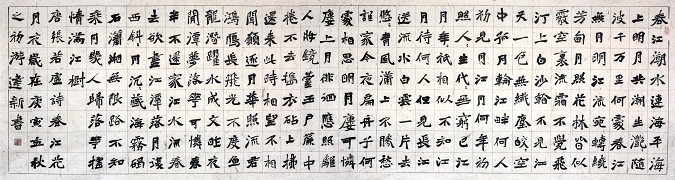 春江潮水連海平海
上明月共潮生灔灔隨
波千万里何處春江
無月明江流宛轉繞
芳甸月照花林皆似
霰空裏流霜不覺飛
汀上白沙看不見江
天一色無纖塵皎皎空
中孤月輪江畔何人
初見月江月何年初
照人人生代代無窮已江
月年年祇相似不知江
月待何人但見長江
送流水白雲一片去
悠悠青楓浦上不勝愁
誰家今夜扁舟子何
處相思明月樓可憐
樓上月徘徊應照離
人妝鏡臺玉戶簾中
捲不去搗衣砧上拂
還來此時相望不相
聞願逐月華流照君
鴻雁長飛光不度魚
龍潛躍水成文昨夜
閒潭夢落花可憐春
半不還家江水流春
去欲盡江潭落月復
西斜斜月沉沉藏海霧碣
石瀟湘無限路不知
乘月幾人歸落月搖
情滿江樹
唐張若虛詩春江花
月夜歲在庚寅孟秋
之初游達新書